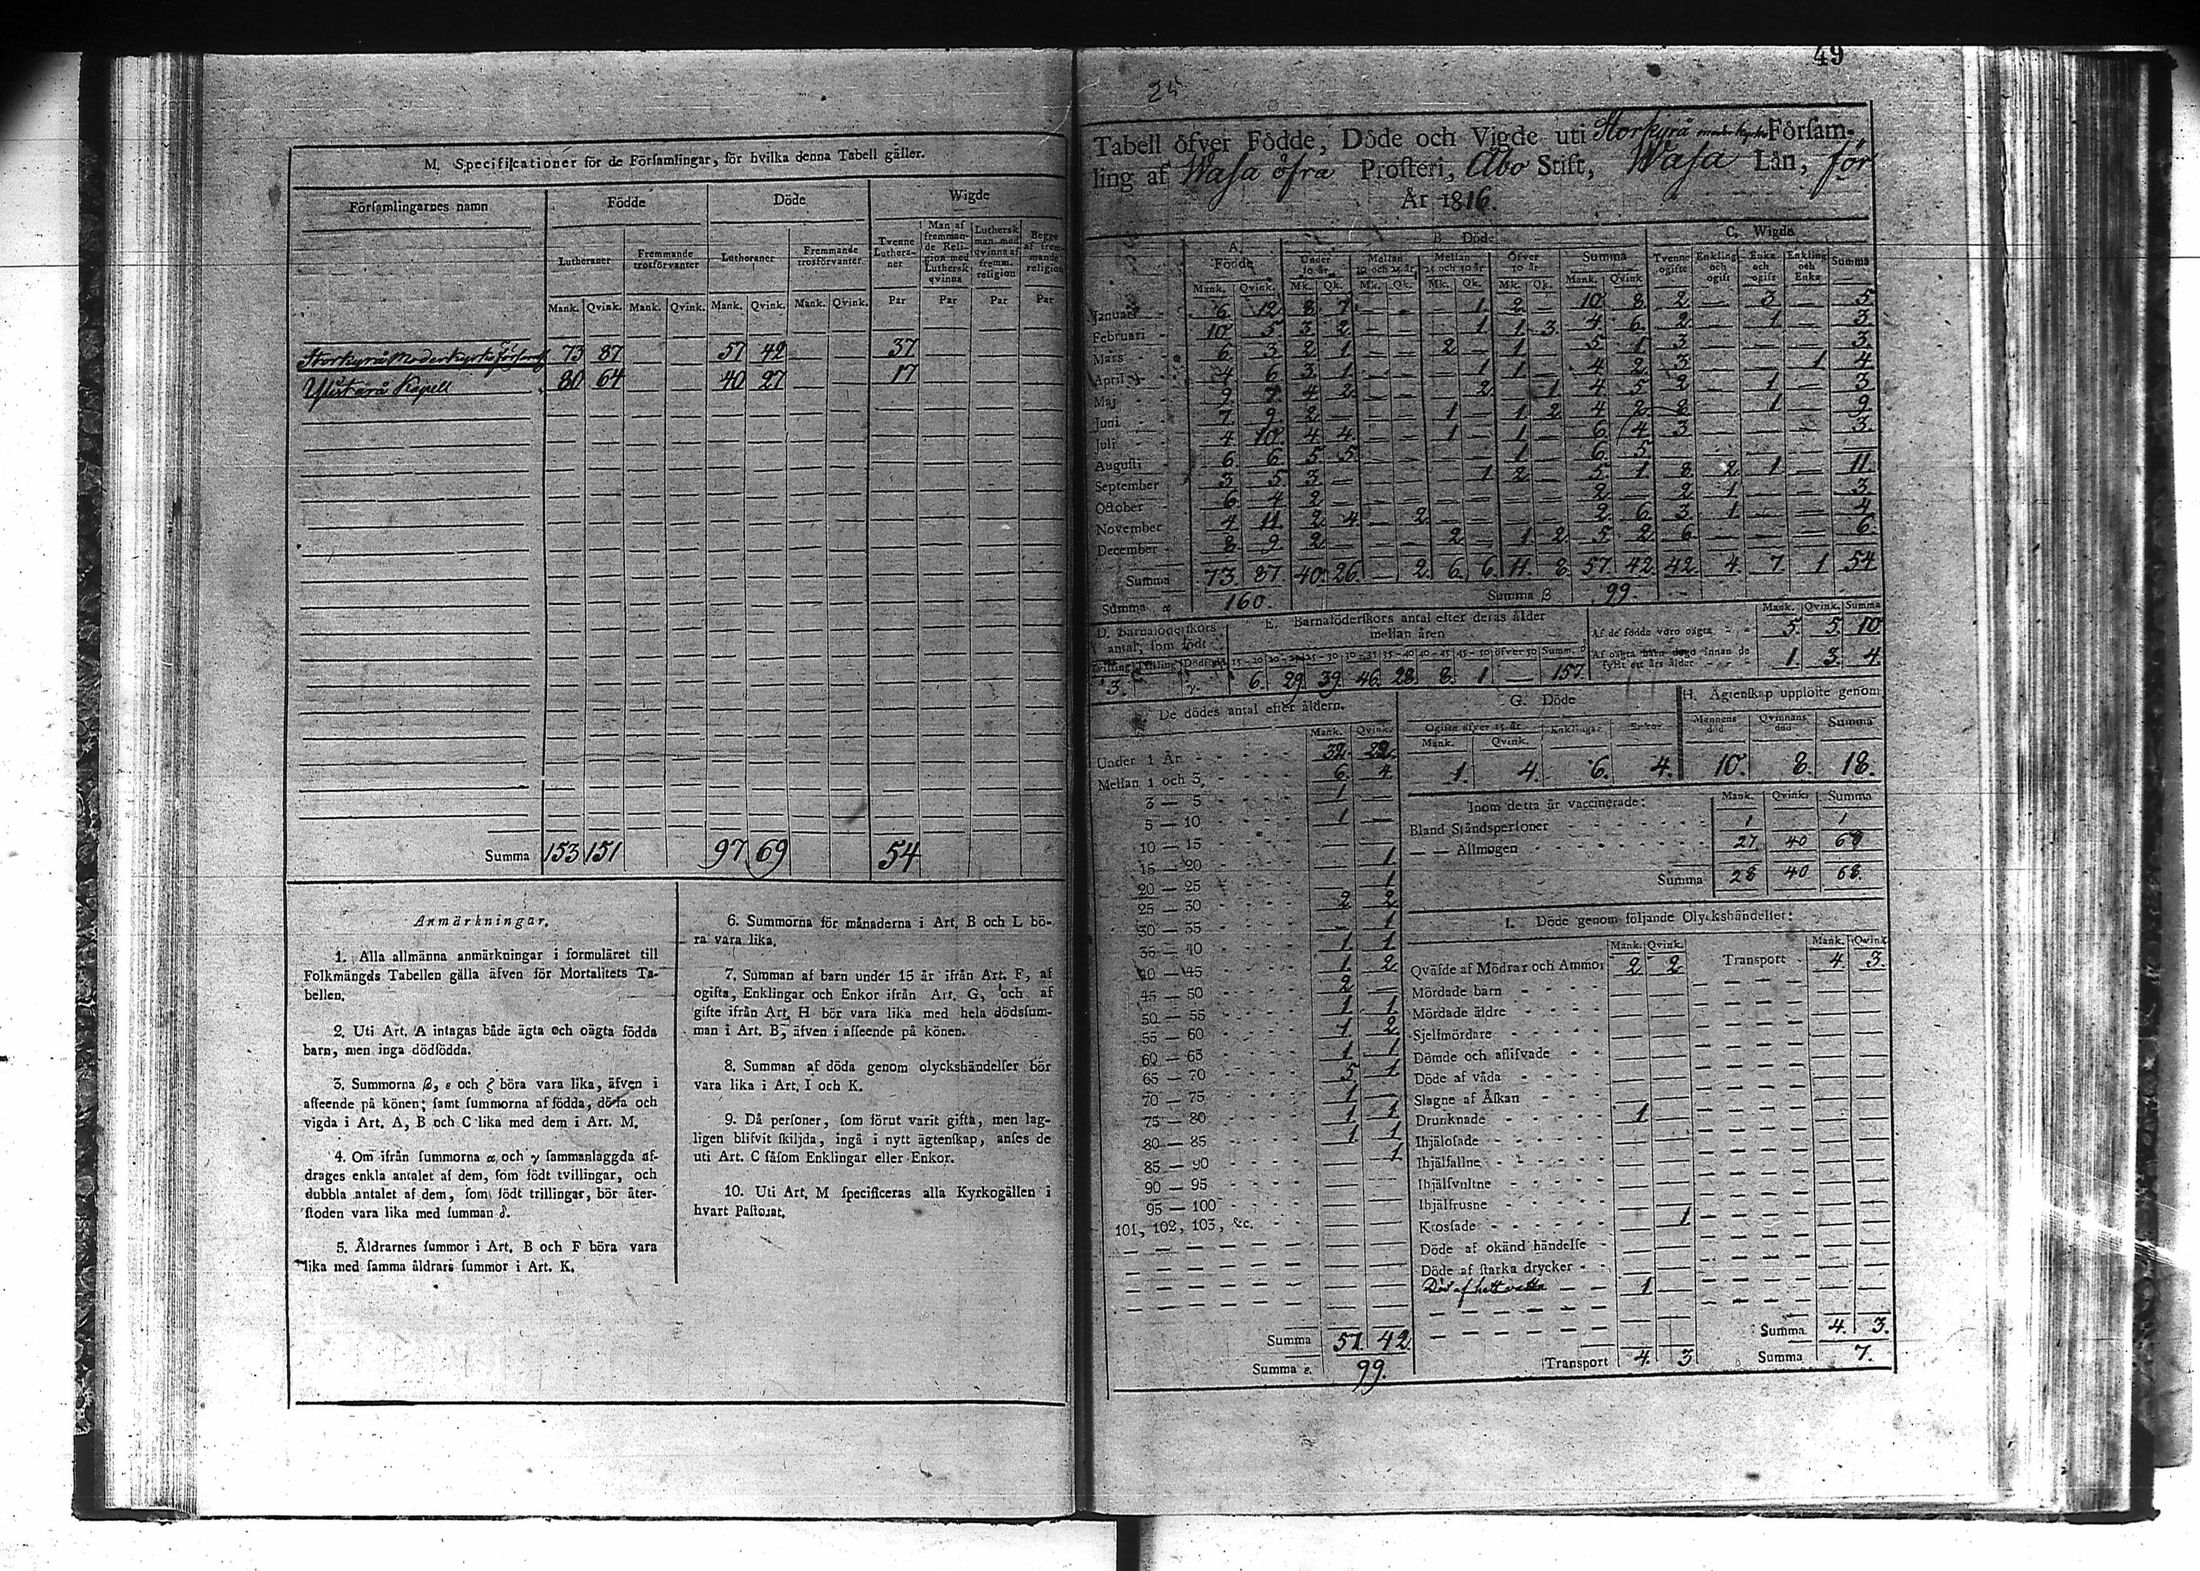 M. Specificationer för de Församlingar, för hvilka denna Tabell gäller.
Församlingarnes namn Födde Döde Wigde
Lutheraner Fremmande trosförvanter Lutheraner Fremmande trosförvanter Tvenne Lutheraner Man af fremmande Religion med Luthersk qvinna Luthersk man med qvinna af fremm. religion Begge af fremmande religion
Mank. Qvink. Mank. Qvink. Mank. Qvink. Mank. Qvink. Par Par Par Par
Storkyrå Moderkyrko Förs 73 87 — — 57 42 — — 37
Ylistaro Kapell 80 64 — — 40 27 — — 17
Summa 153 151 97 69 54
Anmärkningar.
1. Alla allmänna anmärkningar i formuläret till
Folkmängds Tabellen gälla äfven för Mortalitets Ta-
bellen.
2. Uti Art. A intagas både ägta och oägta födda
barn, men inga dödfödda.
3. Summorna β, ε och ζ böra vara lika, äfven i
afseende på könen; samt summorna af födda, döda och
vigda i Art. A, B och C lika med dem i Art. M.
4. Om ifrån summorna α och γ sammanlaggda af-
drages enkla antalet af dem, som födt tvillingar, och
dubbla antalet af dem, som födt trillingar, bör åter-
stoden vara lika med summan δ.
5. Åldrarnes summor i Art. B och F böra vara
lika med samma åldrars summor i Art. K.
6. Summorna för månaderna i Art. B och L bö-
ra vara lika.
7. Summan af barn under 15 år ifrån Art. F, af
ogifta, Enklingar och Enkor ifrån Art. G, och af
gifte ifrån Art. H bör vara lika med hela dödssum-
man i Art. B, äfven i afseende på könen.
8. Summan af döda genom olyckshändelser bör
vara lika i Art. I och K.
9. Då personer, som förut varit gifta, men lag-
ligen blifvit skiljda, ingå i nytt ägtenskap, anses de
uti Art. C såsom Enklingar eller Enkor.
10. Uti Art. M specificeras alla Kyrkogällen i
hvart Pastorat.
49
25
Tabell öfver Födde, Döde och Vigde uti Storkyrå moderkyrko Försam-
ling af Wasa öfra Prosteri, Åbo Stift, Wasa Län, för
År 1816.
A. Födde B. Döde C. Wigde
Under 10 år. Mellan 10 och 25 år. Mellan 25 och 50 år Öfver 50 år Summa Tvenne ogifte Enkling och ogift Enka och ogift Enkling och Enka Summa
Mank. Qvink. Mk. Qk. Mk. Qk. Mk. Qk. Mk. Qk. Mank. Qvink
Januari 6. 12 8. 7. — — — 1 2 — 10 8 2 — 3 — 5
Februari 10 5 3 2 — — 1 1 3 4 6 2 — 1 — 3
Mars 6 3 2 1 — — 2 — 1 — 5 1 3 3
April 4 6 3 1 — — — 1 1 — 4 2 3 — — 1 4
Maj 9 7 4 2 — — — 2 — 1 4 5 2 — 1 — 3
Juni 7 9 2 — — — 1 — 1 2 4 2 8 — 1 — 9
Juli 4 10 4 4 — — 1 — 1 — 6 4 3 — — — 3
Augusti 6 6 5 5 — — — — 1 — 6 5
September 3 5 3 — — — — 1 2 — 5 1 8 2 1 — 11
October 6 4 2 — — — — — — — 2 — 2 1 — — 3
November 4 11 2 4 — 2 — — — — 2 6 3 1 — — 4
December 8 9 2 — — — 2 — 1 2 5 2 6 — — — 6
Summa 73. 87 40. 26. — 2 6 6 11. 8 57 42 42 4 7 1 54
Summa α 160. Summa β 99.
D. Barnaföderskors antal, som födt
Tvilling Trilling Dödfödd
3.
E. Barnaföderskors antal efter deras ålder mellan åren
15-20 20-25 25-30 30-35 35-40 40-45 45-50 öfver 50 Summ. δ
6. 29 39 46. 28. 8. 1 — 157.
Mank. Qvink. Summa
Af de födde voro oägta 5. 5. 10
Af oägta barn dogo innan de fyllt ett års ålder 1 3. 4.
De dödes antal efter åldern.
Mank. Qvink.
Under 1 År 32 22
Mellan 1 och 3 6. 4
3 — 5 1 —
5 — 10 1 —
10 — 15
15 — 20 1
20 — 25 1
25 — 30 2 2
30 — 35 — 1
35 — 40 1 1
40 — 45 1 2
45 — 50 2 —
50 — 55 1 1
55 — 60 1 2
60 — 65 1 1
65 — 70 5 1
70 — 75 1 —
75 — 80 1 1
80 — 85 1 1
85 — 90 — 1
90 — 95
95 — 100
101, 102, 103, &c.
Summa 57 42
Summa ε. 99.
G. Döde
Ogifte öfver 15 år Enklingar Enkor
Mank. Qvink.
1. 4. 6. 4.
H. Ägtenskap upplöste genom
Mannens död Qvinnans död Summa
10. 8. 18.
Inom detta år vaccinerade: Mank. Qvink. Summa
Bland Ståndspersoner 1 1
— — Allmogen 27 40 68
Summa 28 40 68.
I. Döde genom följande Olyckshändelser:
Mank. Qvink. Mank. Qvink
Qväfde af Mödrar och Ammor 2 2 Transport 4. 3.
Mördade barn
Mördade äldre
Sjelfmördare
Dömde och aflifvade
Döde af våda
Slagne af Åskan
Drunknade 1
Ihjälofade
Ihjälfallne
Ihjälsvultne
Ihjälfrusne
Krossade 1
Döde af okänd händelse
Döde af starka drycker
Död af hett vatten 1
Summa 4. 3.
Transport 4. 3 Summa 7.